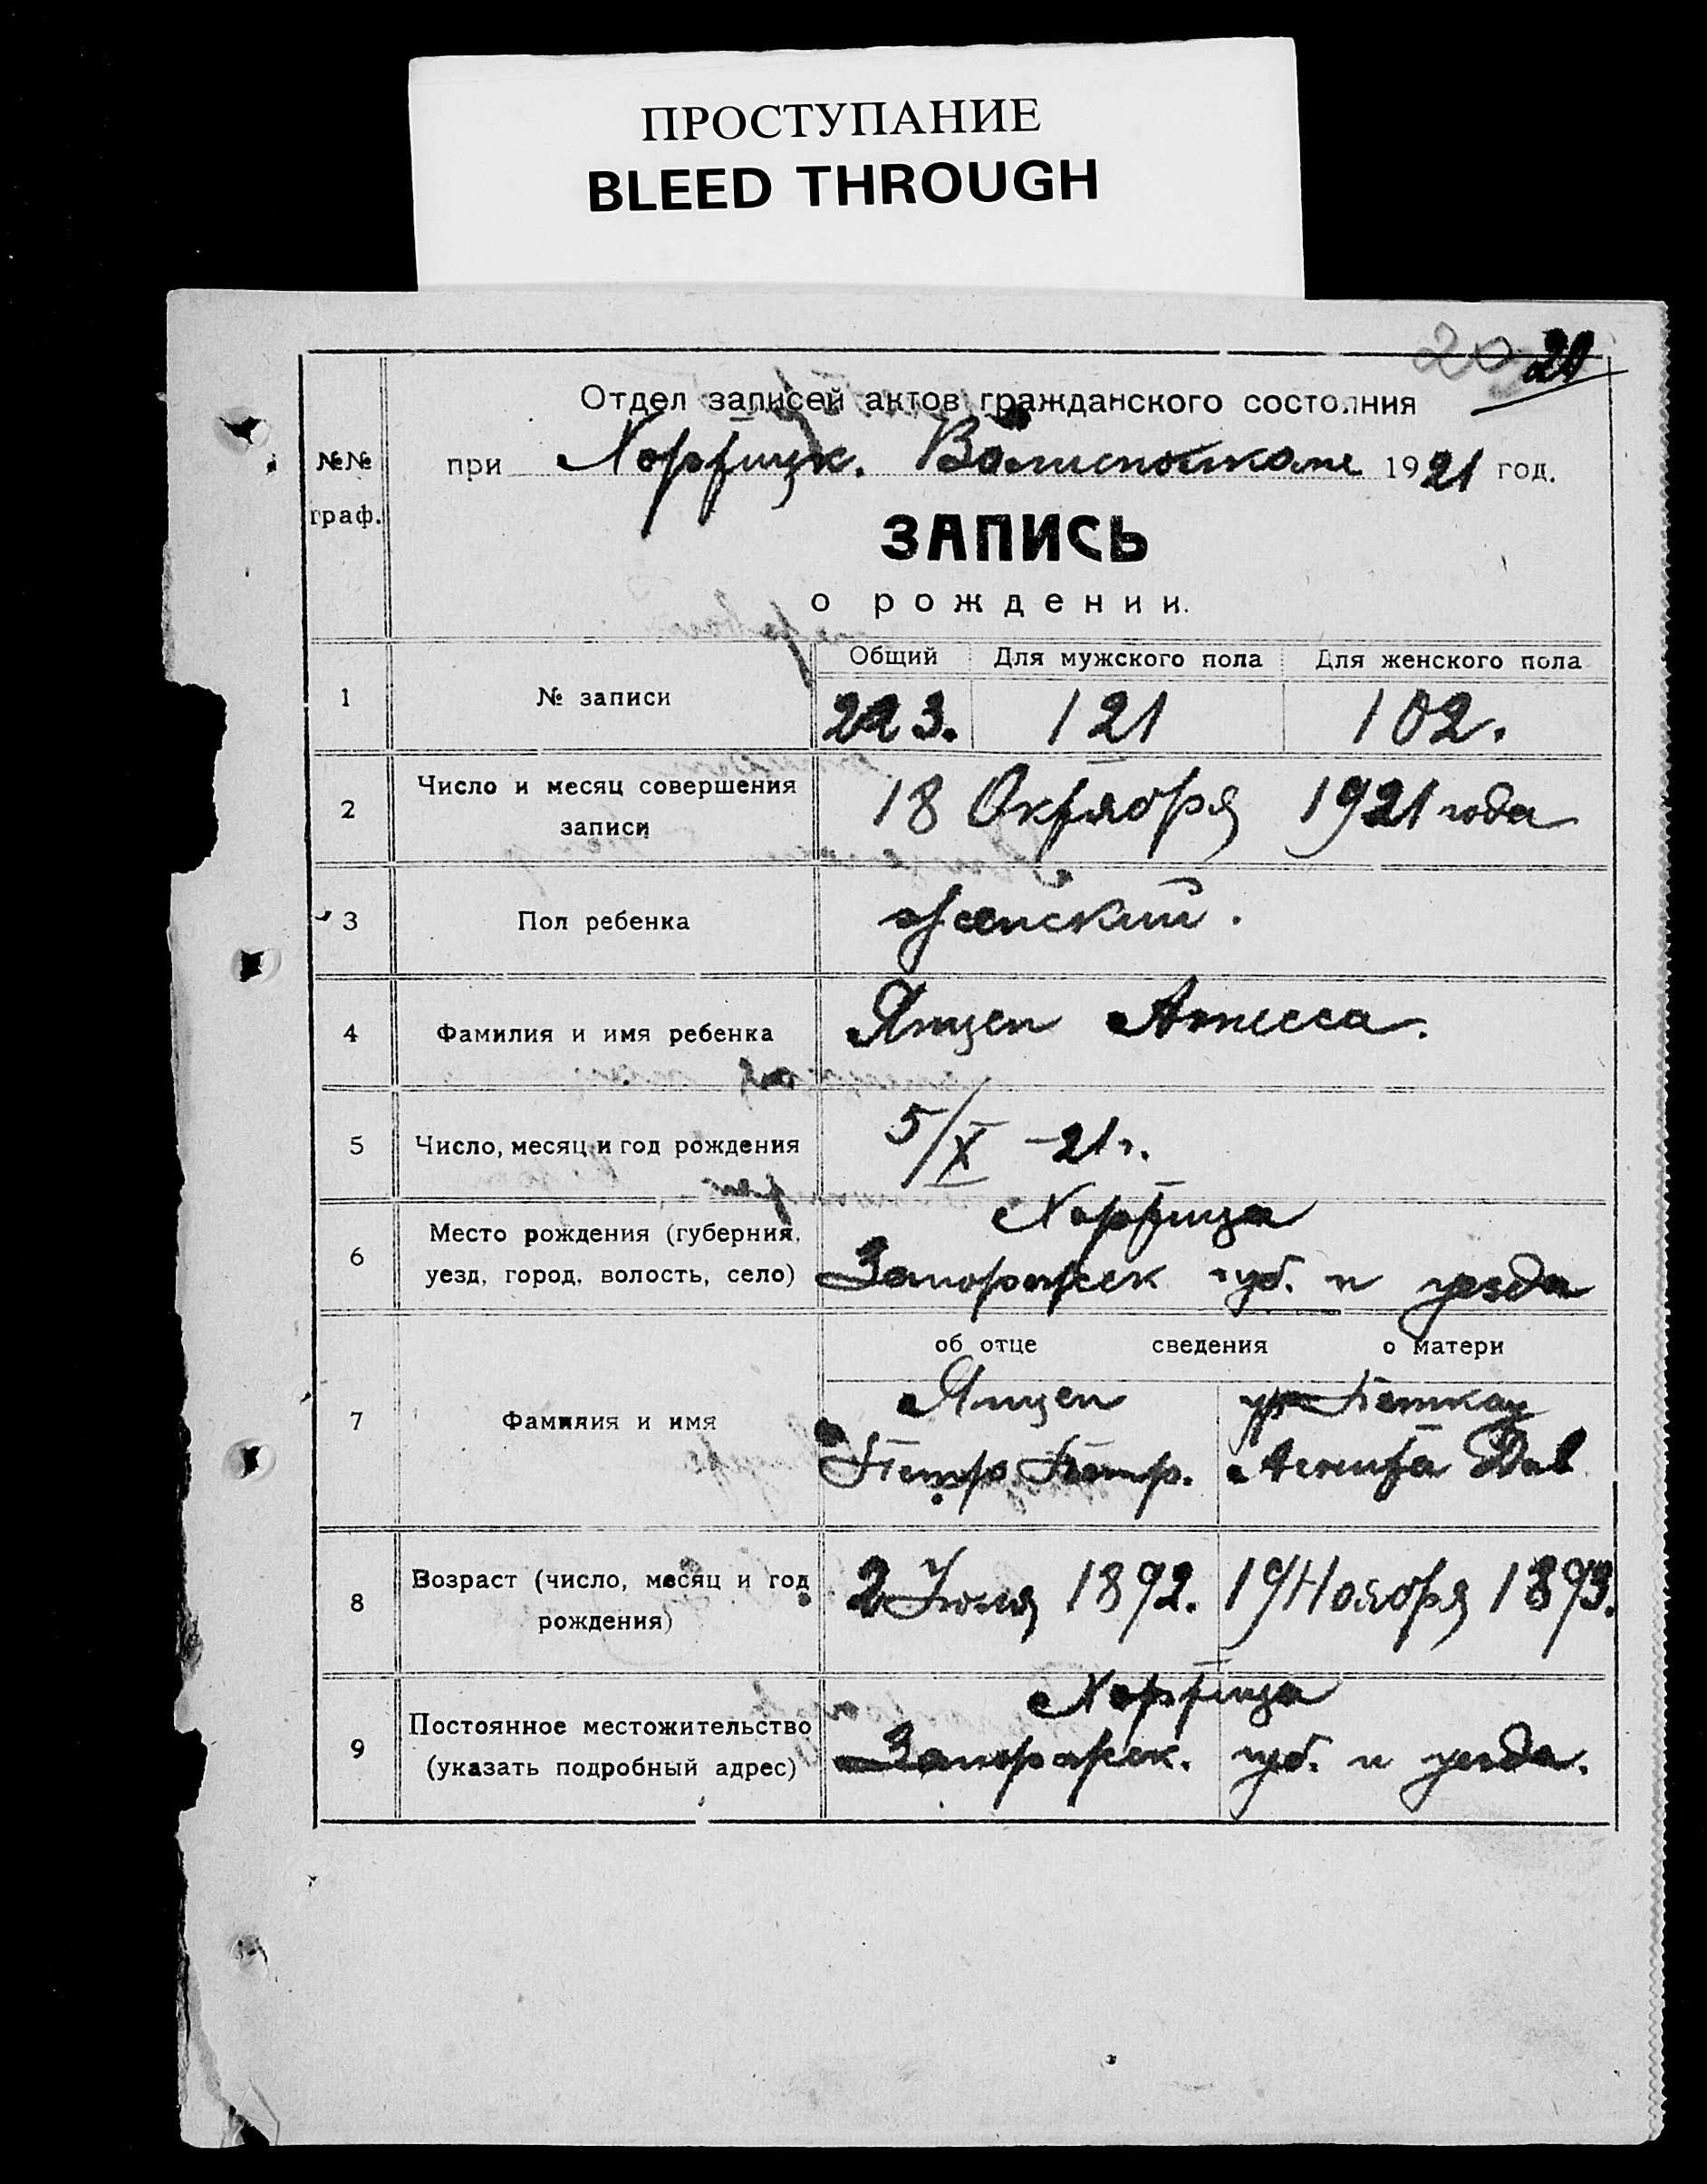 ПРОСТУПАНИЕ
BLEED THROUGH
20 20
Отдел записей актов гражданского состояния
№№ граф.
при Хортицк. Волисполкоме 1921 год.
ЗАПИСЬ
о рождении.
Общий Для мужского пола Для женского пола
1 № записи 223. 121 102.
2 Число и месяц совершения записи 18 Октября 1921 года
3 Пол ребенка Женский.
4 Фамилия и имя ребенка Янцен Агнесса.
5 Число, месяц и год рождения 5/X –21 г.
6 Место рождения (губерния, Хортица
уезд, город, волость, село) Запорожск губ. и уезда
об отце сведения о матери
7 Фамилия и имя Янцен ур
Петр Петр. Дав
8 Возраст (число, месяц и год рождения) 2 Июля 1892. 19 Ноября 1893.
9 Постоянное местожительство Хортица
(указать подробный адрес) Запорожск. губ. и уезда.